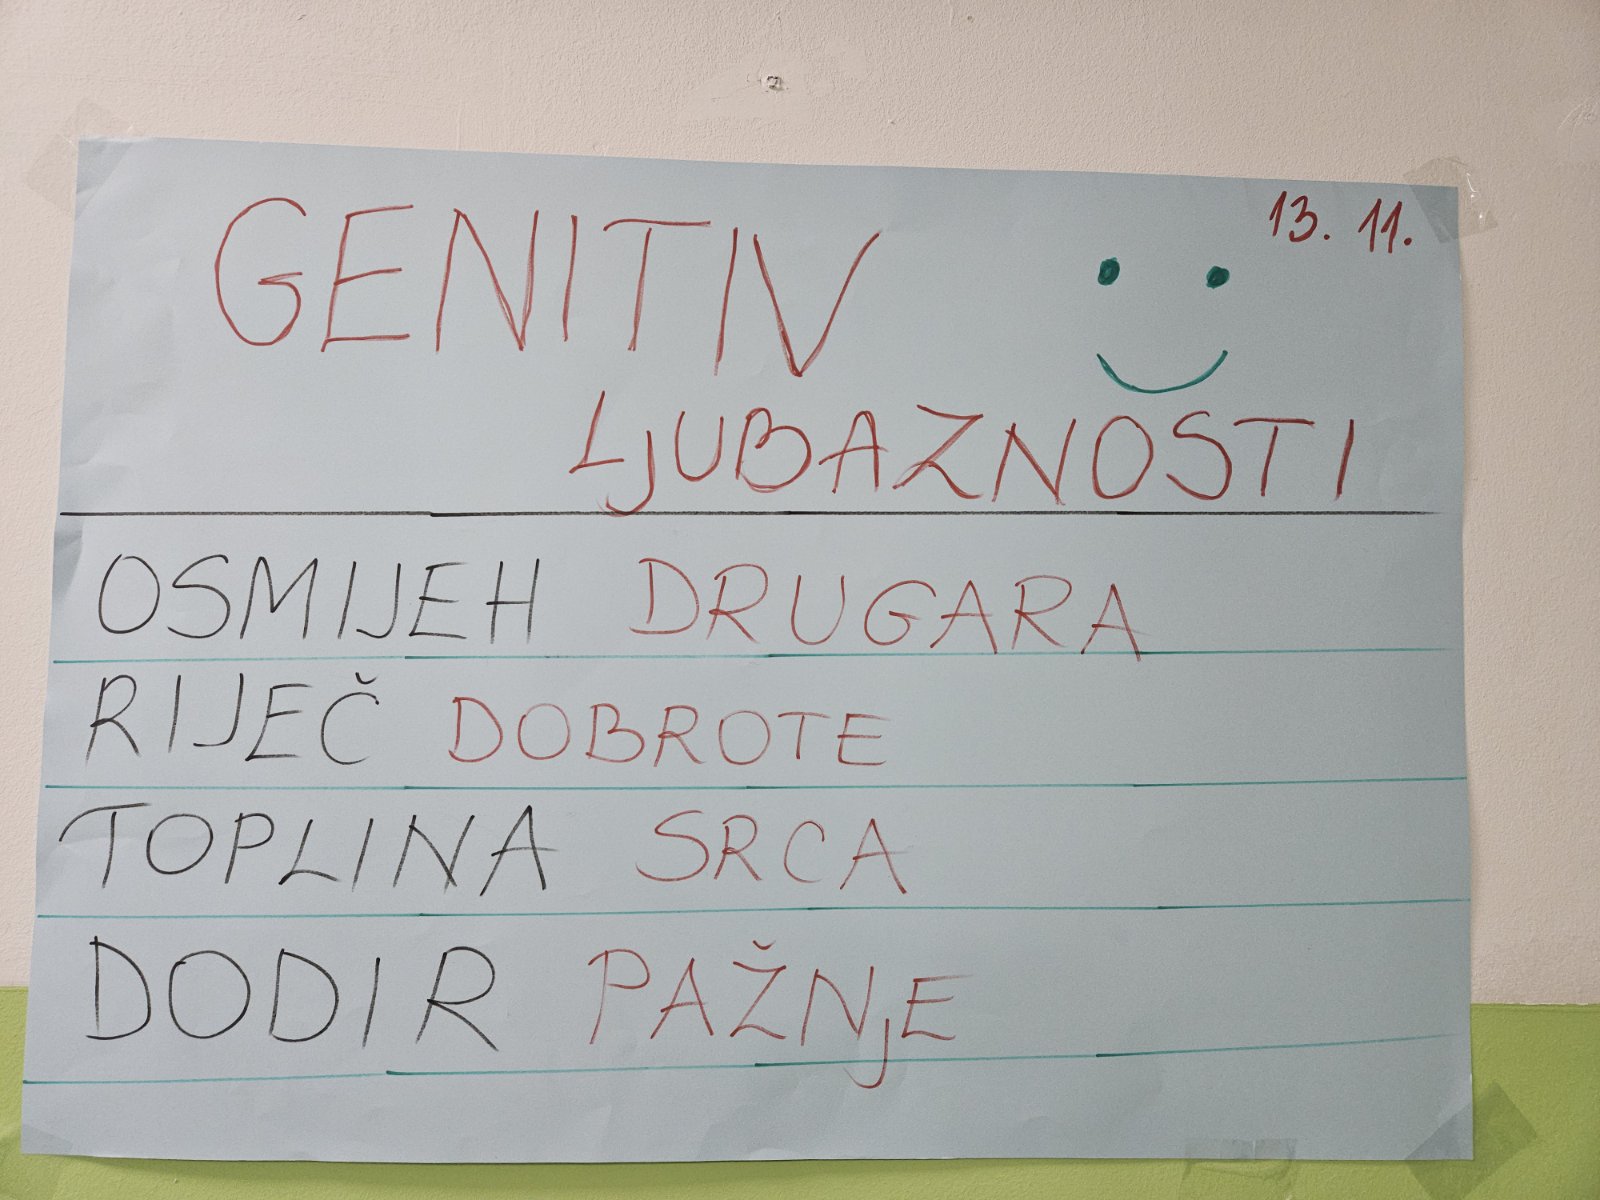 13. 11.
GENITIV
LjUBAZNOSTI
OSMIJEH DRUGARA
RIJEČ DOBROTE
TOPLINA SRCA
DODIR PAŽNjE